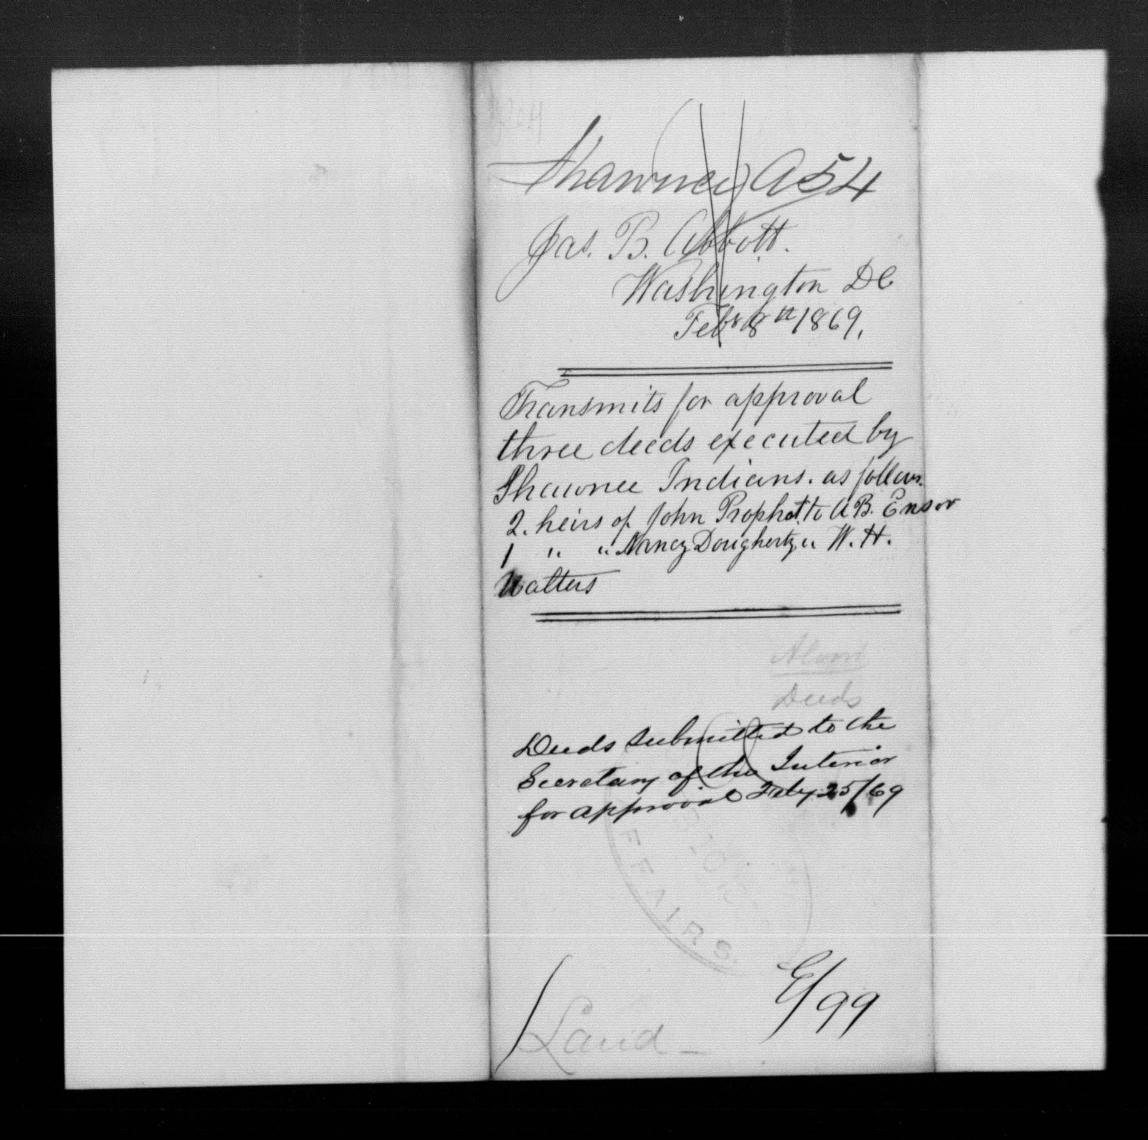 Shawnee A 54
Jas. B. Abbott.
Washington DC
Feby 8th 1869.
Transmits for approval
three deeds executed by
Shawnee Indians. as follows.
2. heirs of John Prophet to A.B. Ensor
1 " " Nancy Dougherty " W. H.
Walters
Deeds
Deeds submitted to the
Secretary of the Interior
for approval Feby 25/69
FFAIRS
E/99
Land